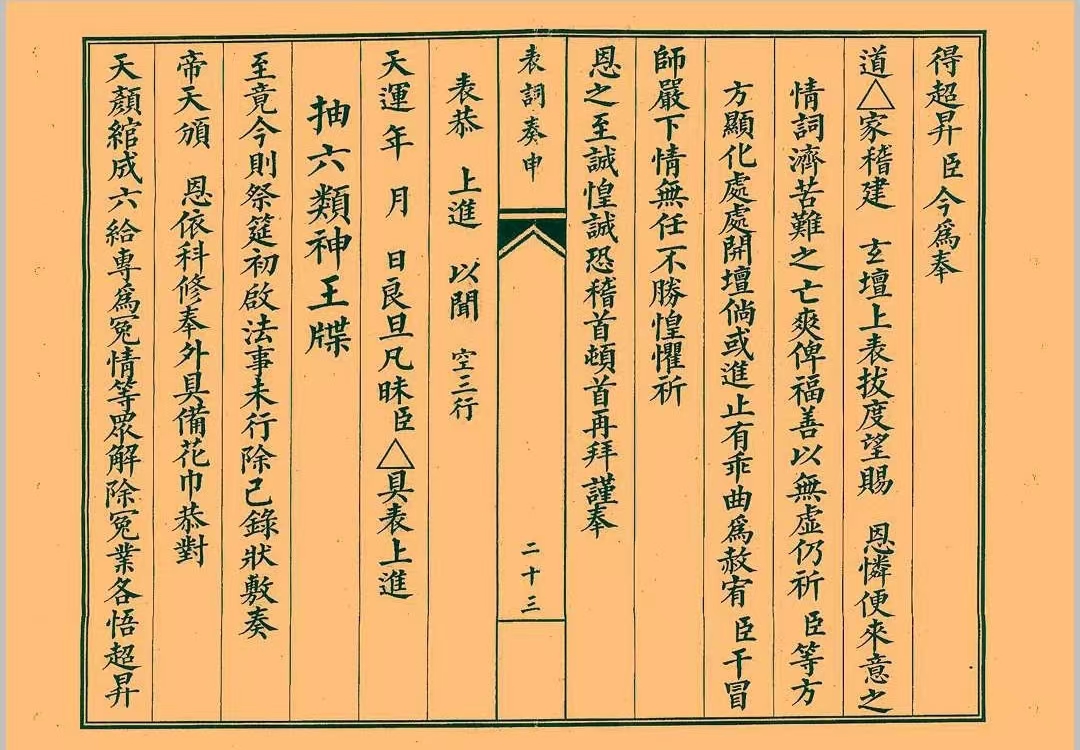 得超昇臣今爲奉
道△家稽建　玄壇上表拔度望賜　恩憐便來意之
情詞濟苦難之亡爽俾福善以無虛仍祈　臣等方
方顯化處處開壇倘或進止有乖曲爲赦宥　臣干冒
師嚴下情無任不勝惶懼祈
恩之至誠惶誠恐稽首頓首再拜謹奉
表詞奏申　二十三
表恭　上進　以聞　空三行
天運　年　月　日良旦凡昧臣△具表上進
抽六類神王牒
至竟今則祭筵初啟法事未行除已錄狀敷奏
帝天頒　恩依科修奉外具備花巾恭對
天顏綰成六給專爲冤情等眾解除冤業各悟超昇